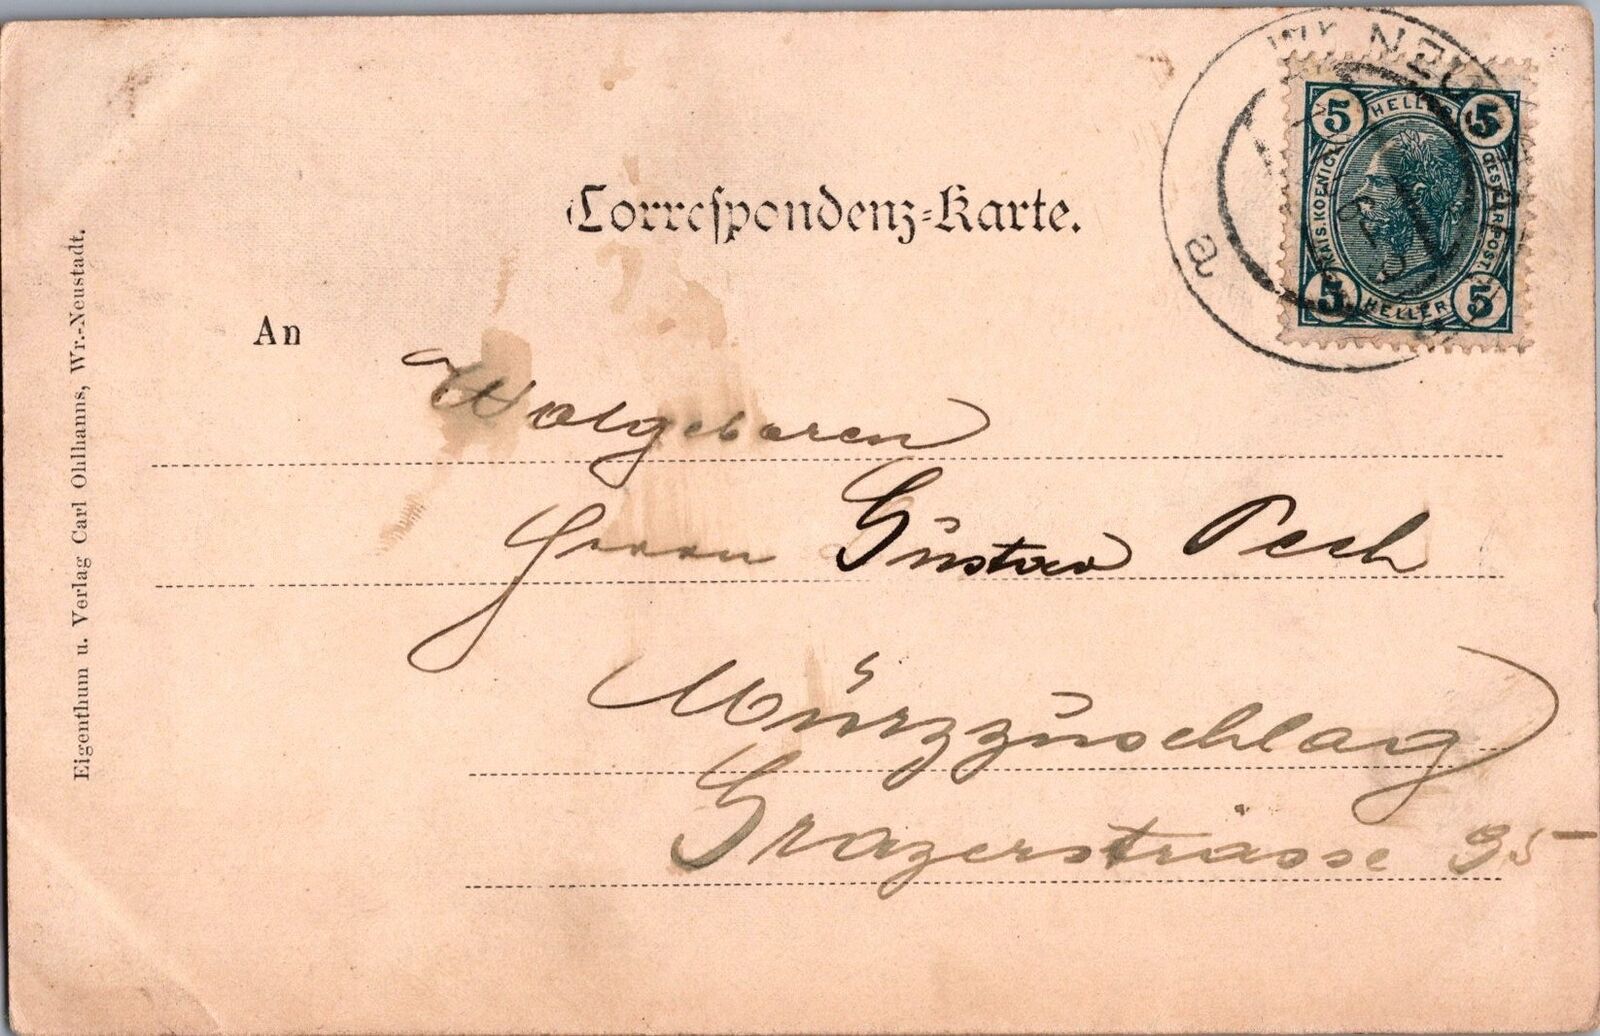 Correspondenz=Karte.
WR. NEUS
a
5 HELLER 5
KAIS.KOENIGL.
OESTERR.POST
5 HELLER 5
An
Wolgeboren
Herrn Gustav Pech
Mürzzuschlag
Grazerstrasse 35
Eigenthum u. Verlag Carl Ohlhanns, Wr.-Neustadt.